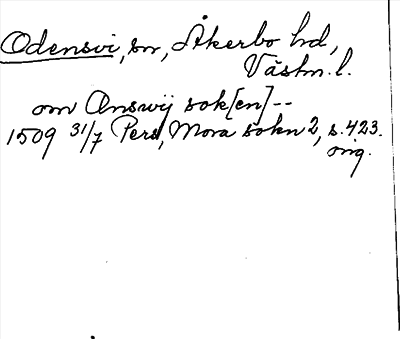 Odensvi, sn, Åkerbo hd,
Västm. l.
om Answij sok[en]--
1509 31/7 Pers, Mora sokn 2, s. 423.
orig.